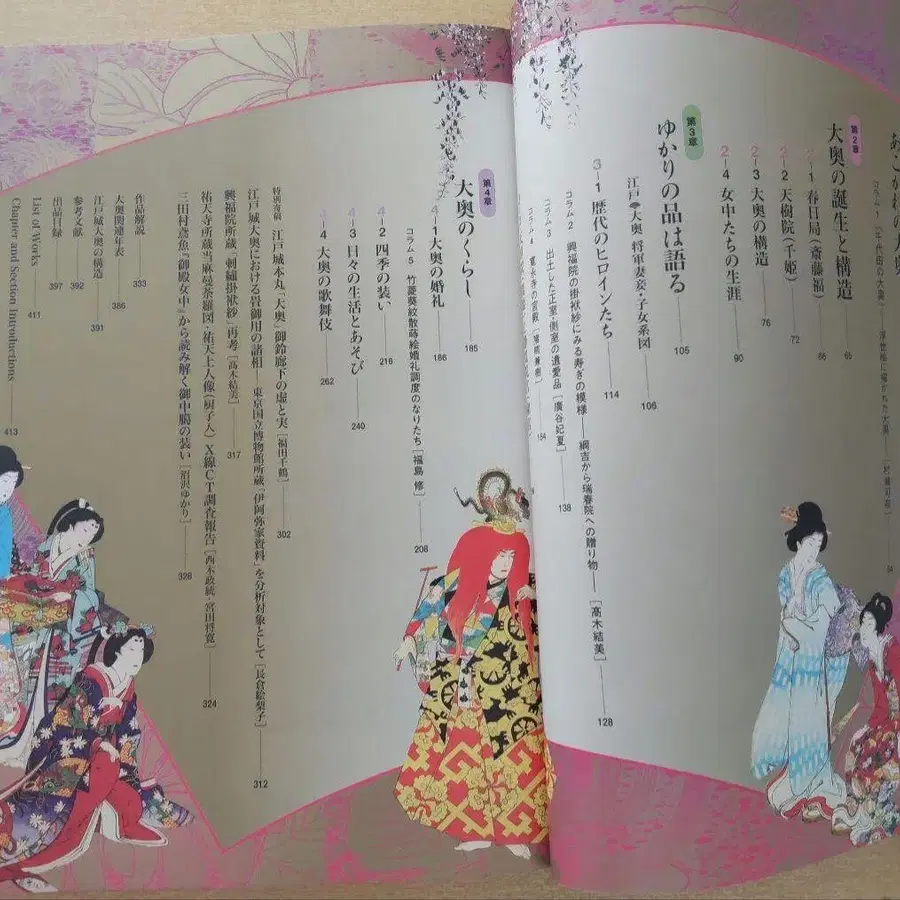 あこがれの大奥
コラム1 「千代田の大奥」――浮世絵に描かれた大奥――
54
第2章
大奥の誕生と構造
65
2-1 春日局（斎藤福）
66
2-2 天樹院（千姫）
72
2-3 大奥の構造
76
2-4 女中たちの生涯
90
第3章
ゆかりの品は語る
105
江戸 大奥 将軍妻妾・子女系図
106
3-1 歴代のヒロインたち
114
コラム2 興福院の掛袱紗にみる寿ぎの模様――綱吉から瑞春院への贈り物――［高木結美］
128
コラム3 出土した正室・側室の遺愛品［廣谷妃夏］
138
コラム4 寛永寺の宮殿
154
第4章
大奥のくらし
185
4-1 大奥の婚礼
186
コラム5 竹菱葵紋散蒔絵婚礼調度のなりたち［福島 修］
208
4-2 四季の装い
216
4-3 日々の生活とあそび
240
4-4 大奥の歌舞伎
262
特別寄稿 江戸城本丸「大奥」御鈴廊下の虚と実［福田千鶴］
302
江戸城大奥における畳御用の諸相 東京国立博物館所蔵「伊阿弥家資料」を分析対象として［長倉絵梨子］
312
興福院所蔵「刺繡掛袱紗」再考［高木結美］
317
祐天寺所蔵当麻曼荼羅図・祐天上人像（厨子入）X線CT調査報告［西木政統・宮田将寛］
324
三田村鳶魚『御殿女中』から読み解く御中臈の装い［沼沢ゆかり］
328
作品解説
333
大奥関連年表
386
江戸城大奥の構造
391
参考文献
392
出品目録
397
List of Works
411
Chapter and Section Introductions
413